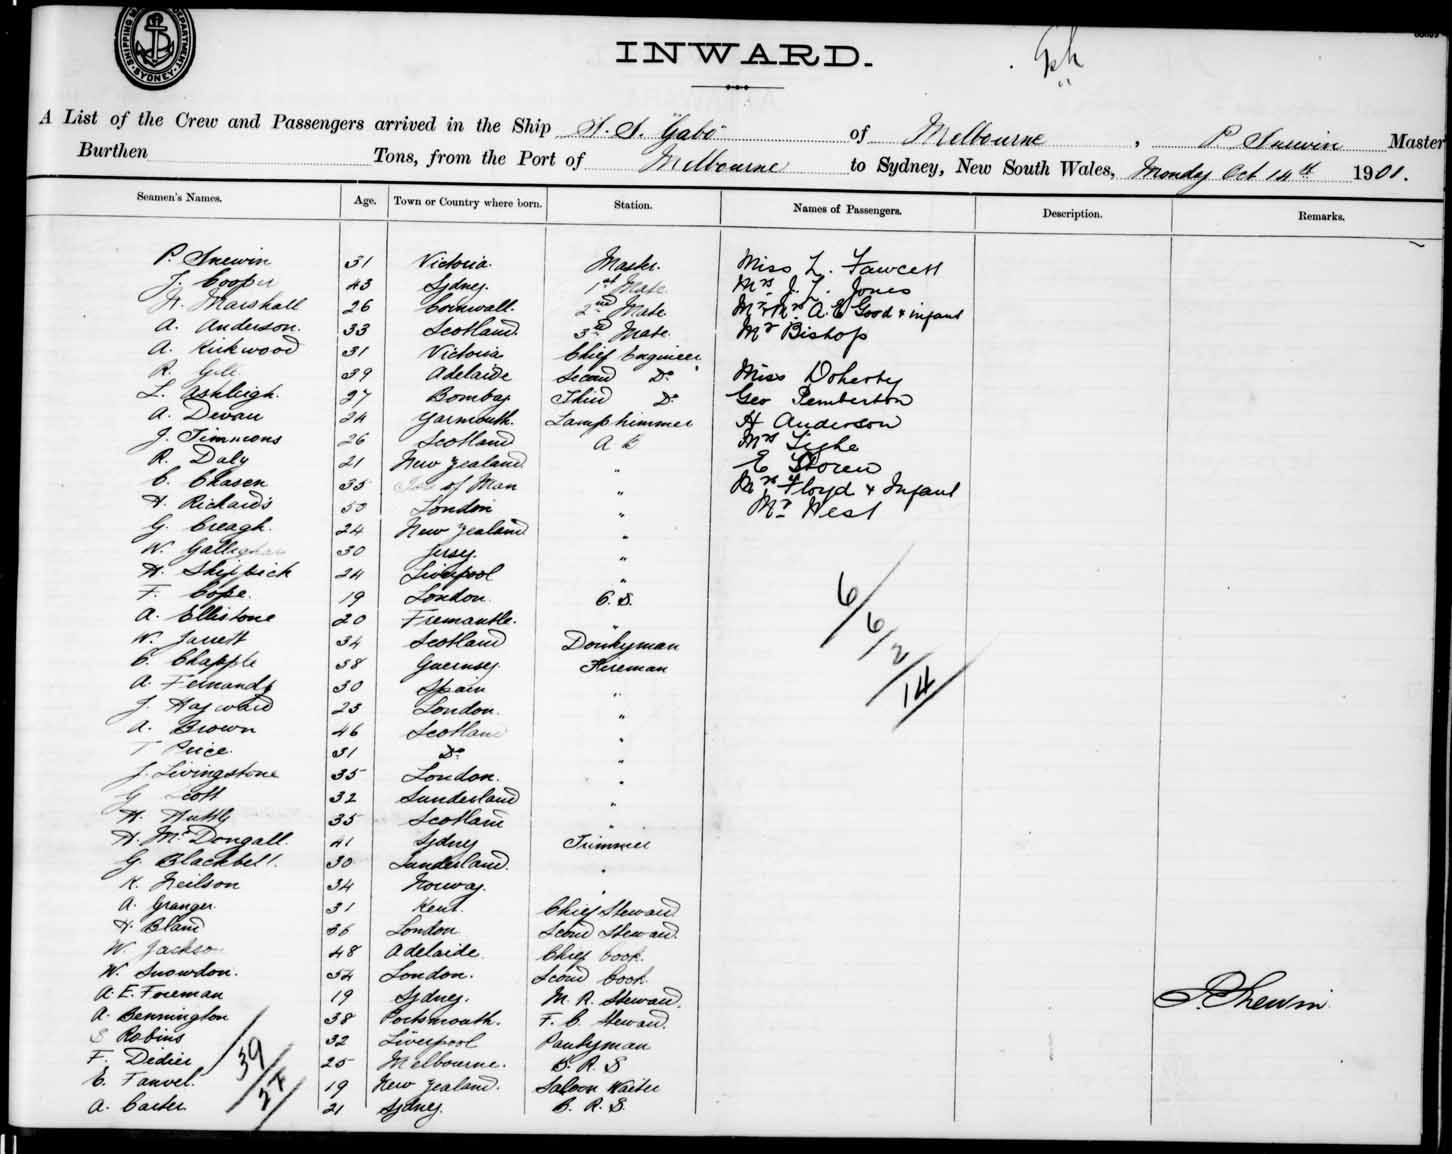 SHIPPING DEPARTMENT. SYDNEY.
INWARD.
A List of the Crew and Passengers arrived in the Ship S. S. Gabo of Melbourne, P. Snewin Master
Burthen Tons, from the Port of Melbourne to Sydney, New South Wales, Monday Oct 14th 1901.
Seamen's Names. Age. Town or Country where born. Station. Names of Passengers. Description. Remarks.
P. Snewin 31 Victoria. Master. Miss L. Fawcett
J. Cooper 43 Sydney. 1st Mate Mrs J. L. Jones
Marshall 26 Cornwall. 2nd Mate Mr & Mrs A. E. Good & infant
A. Anderson. 33 Scotland 3rd Mate. Mr Bishop
A. Kirkwood 31 Victoria Chief Engineer
R. 39 Adelaide Second Do. Miss Doherty
L. Ashleigh. 27 Bombay Third Do. Geo Pemberton
A. Devau 24 Yarmouth. Lamptrimmer H Anderson
J. Timmons 26 Scotland A B Mrs Tighe
R. Daly 21 New Zealand " E
C. Chasen 35 Isle of Man " Mrs Floyd & Infant
H. Richards 50 London " Mr West
G. Creagh. 24 New Zealand "
W. Gallagher 30 Jersy. "
H. 24 Liverpool "
F. Cope. 19 London. O. S.
A. Ellistone 20 Fremantle. "
W. Jarrett 34 Scotland Donkyman
C. Chapple 38 Guernsey Fireman
A. Fernandz 30 Spain "
J. Hayward 23 London. "
A. Brown 46 Scotland "
T Price. 31 Do. "
J. Livingstone 35 London. "
G Scott 32 Sunderland "
H. 35 Scotland "
H. McDongall. 41 Sydney Trimmer
G. Blackbell. 30 Sunderland. "
K. Neilson 34 Norway. "
A. Granger. 31 Kent. Chief Steward
H Bland 36 London Second Steward.
W. Jackson 48 Adelaide Chief Cook.
W. Snowdon. 34 London. Second Cook
A. E. Foreman 19 Sydney. M. R. Steward.
A. Bennington 38 Portsmouth. F. C. Steward.
S Robins 32 Liverpool Pantyman
F. Didier 25 Melbourne. B. R. S
E. Fanvel. 19 New Zealand. Saloon Waiter
A. Carter 21 Sydney. B. R. S.
6/6/2/14
39/27
P. Snewin